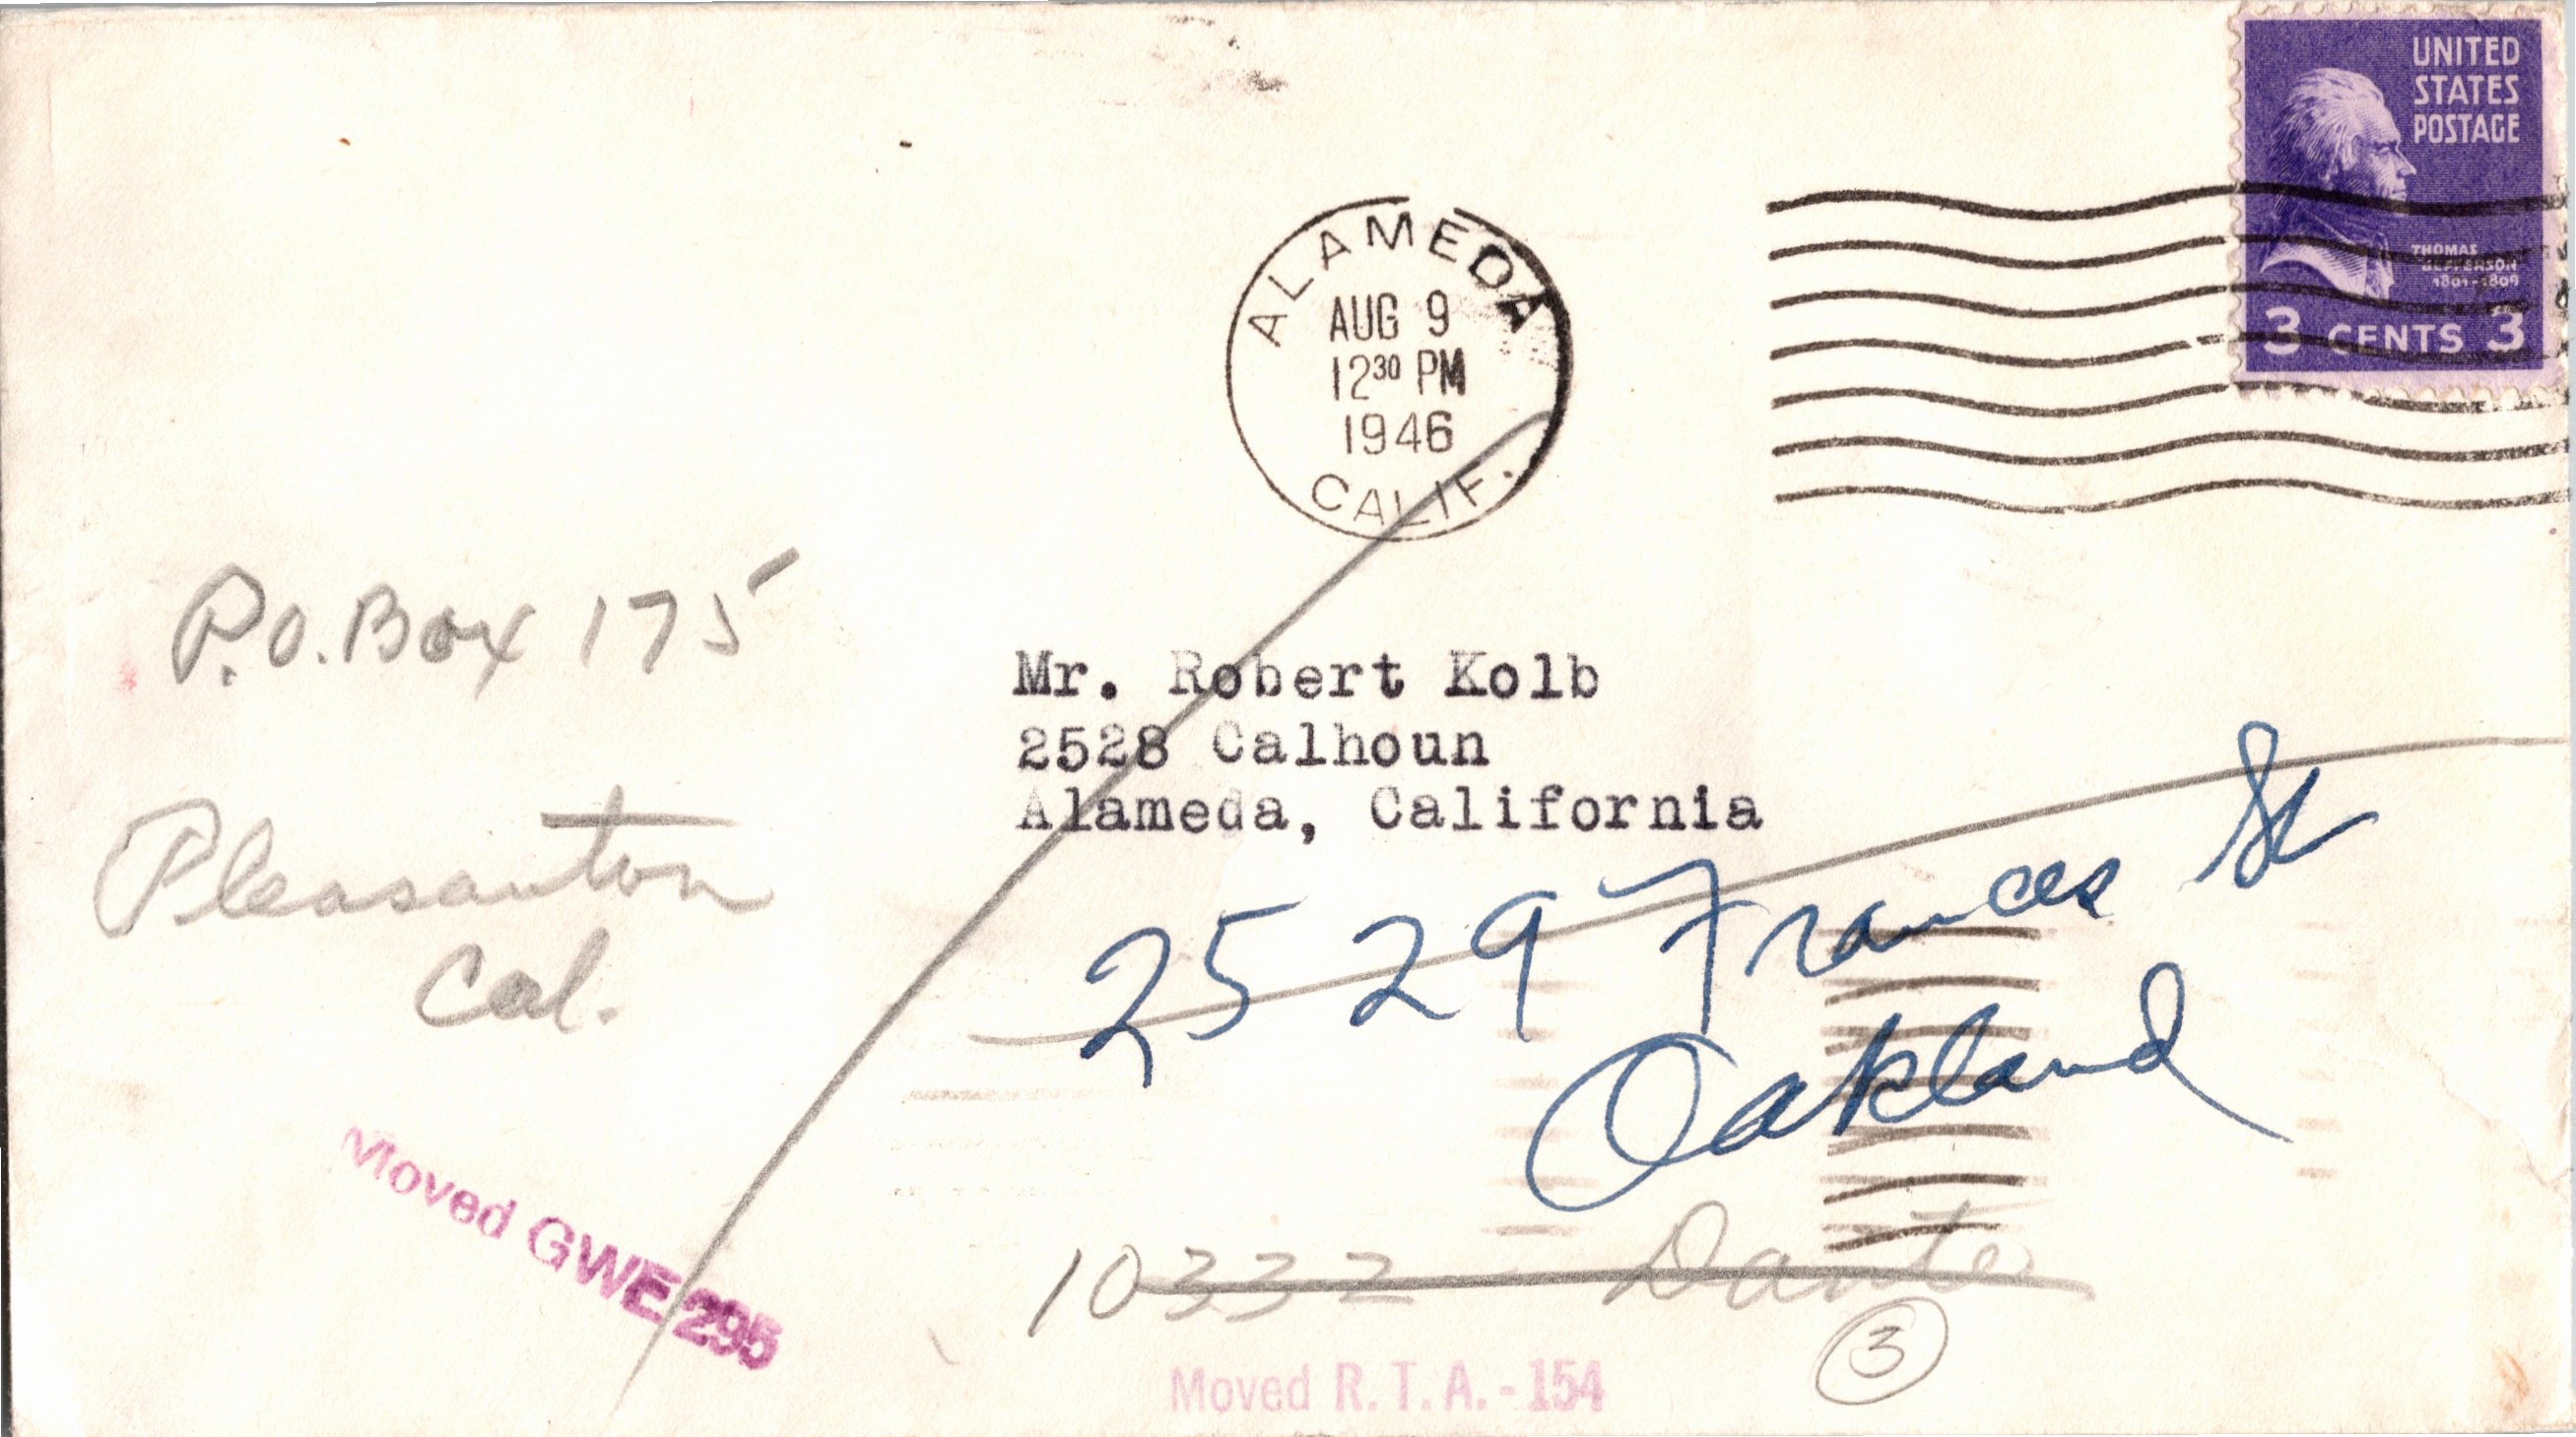 UNITED
STATES
POSTAGE
THOMAS
JEFFERSON
1801-1809
3 CENTS 3
ALAMEDA
AUG 9
12 30 PM
1946
CALIF.
P.O. Box 175
Pleasanton
Cal.
Mr. Robert Kolb
2528 Calhoun
Alameda, California
2529 Frances St
Oakland
10332 Dante
3
Moved GWE 295
Moved R.T.A.-154